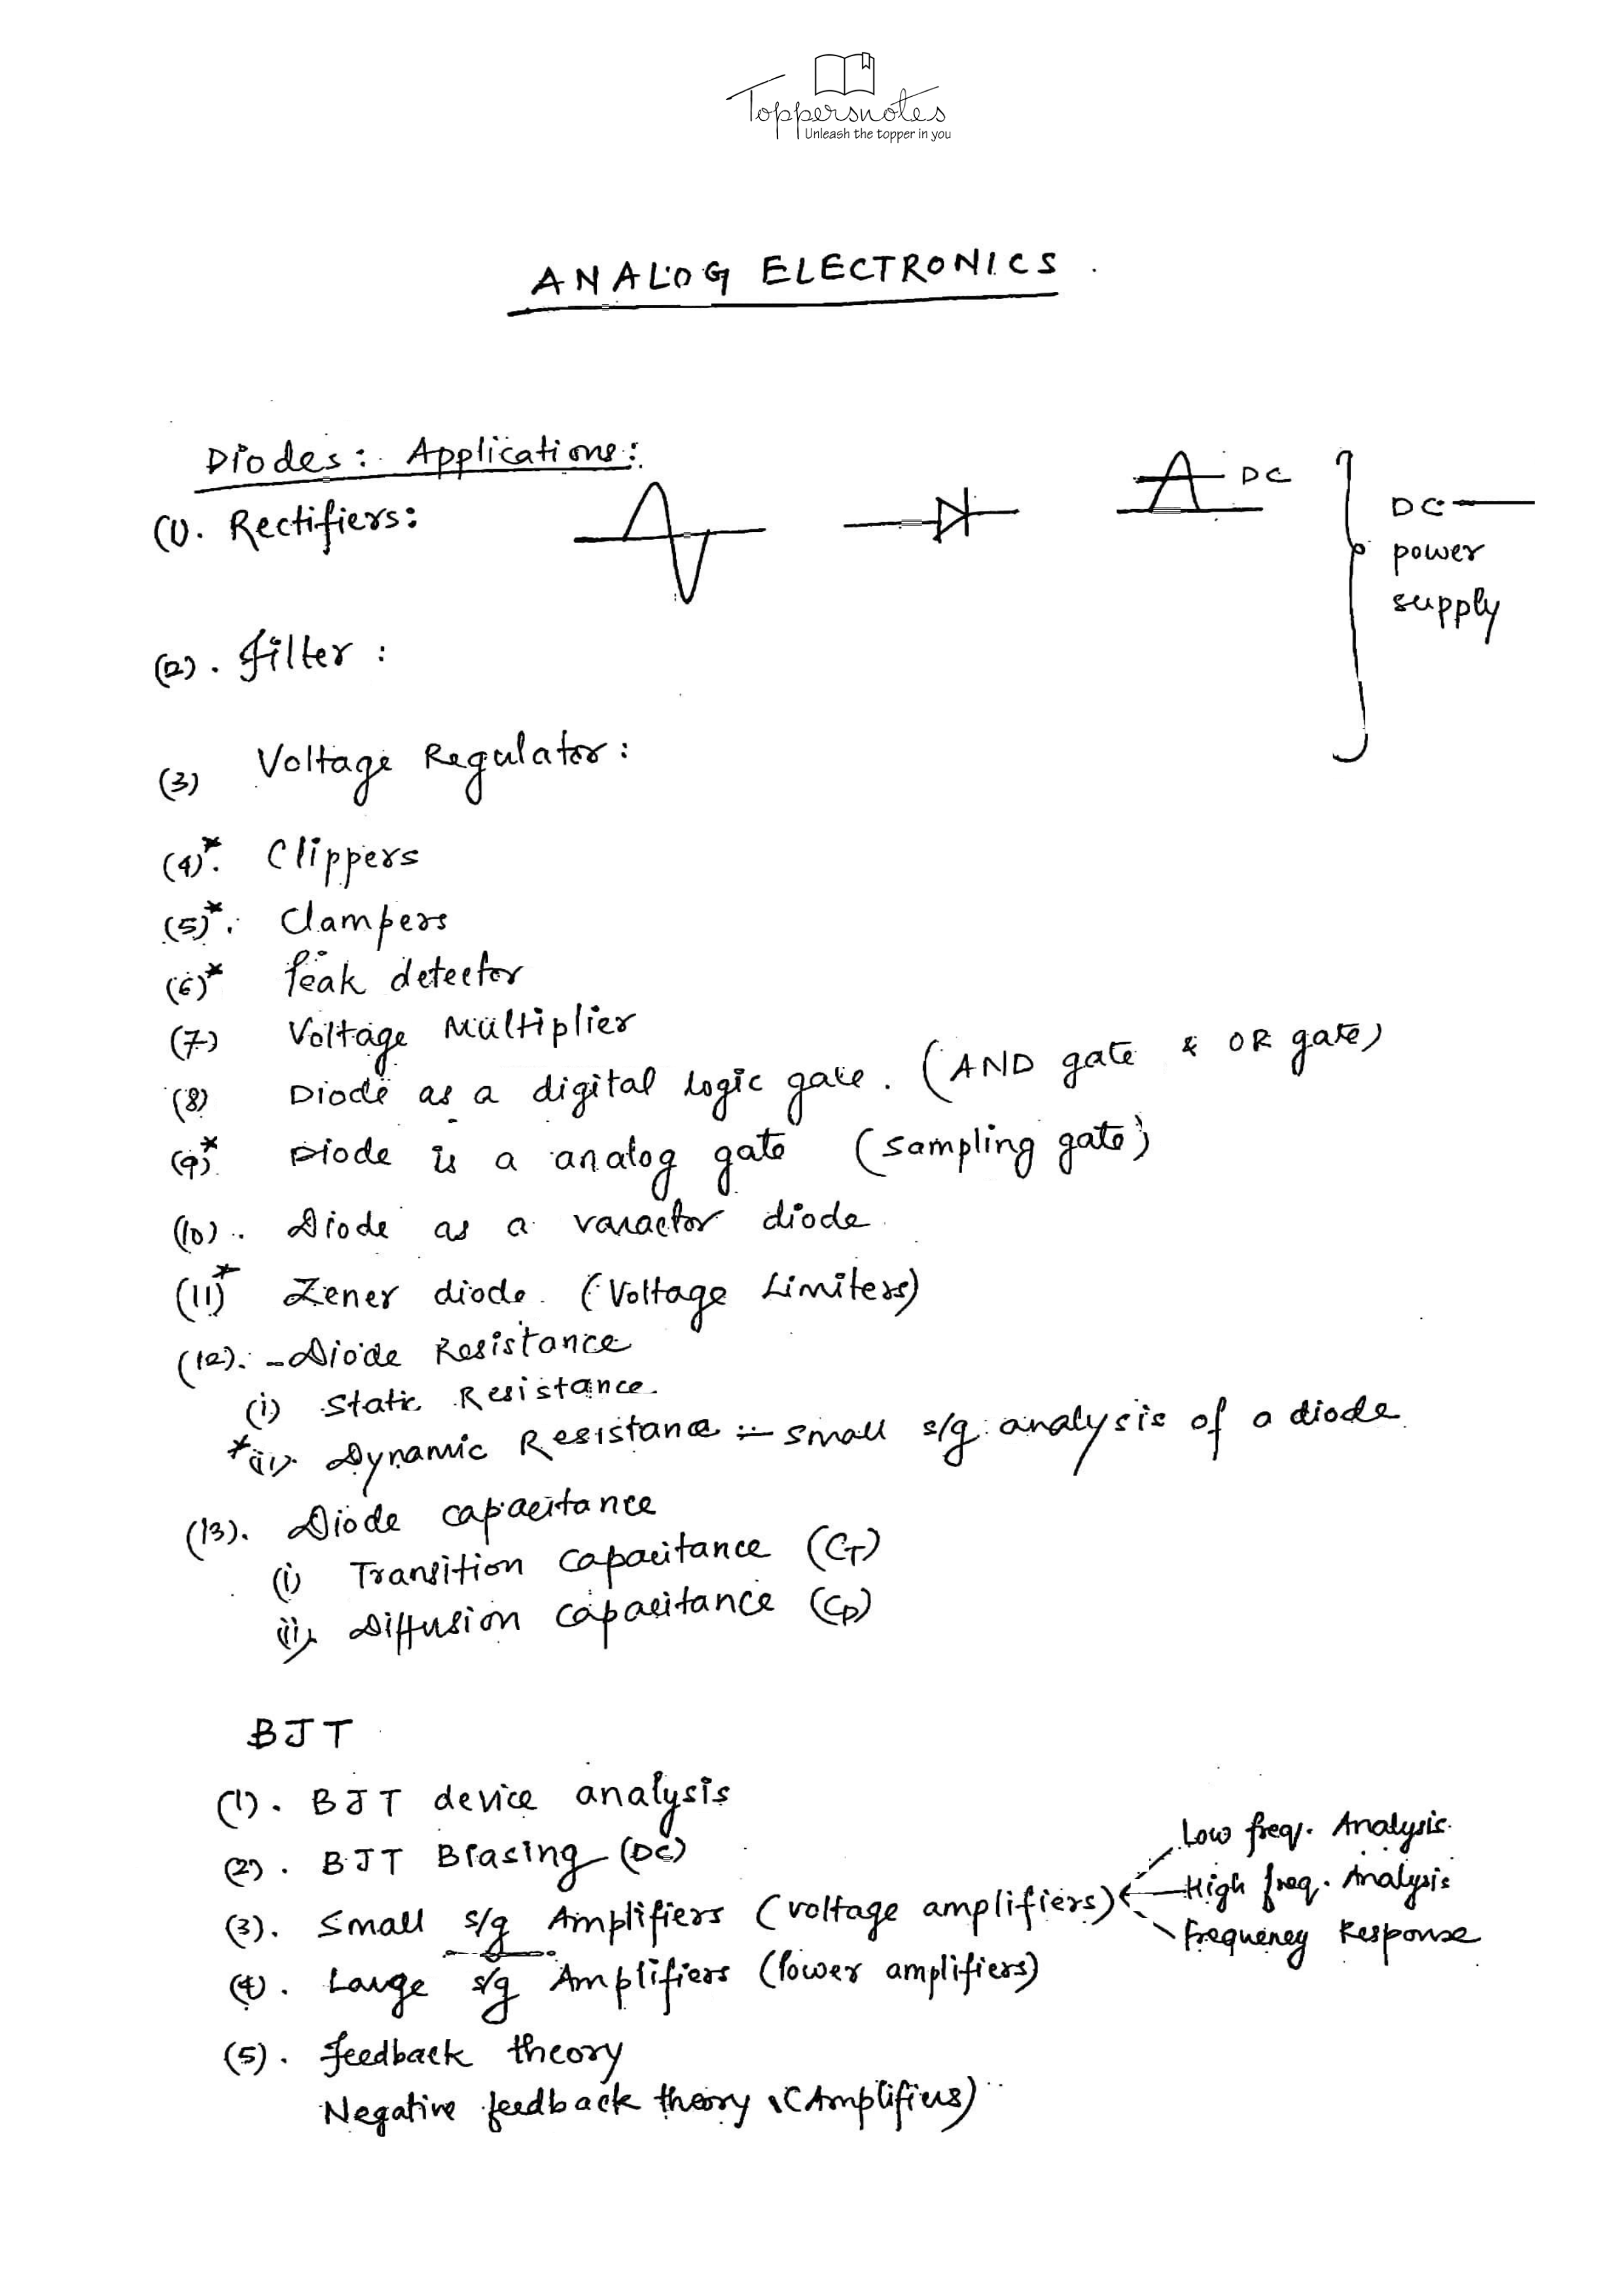 Toppersnotes
Unleash the topper in you
ANALOG ELECTRONICS.
Diodes: Applications:
(1). Rectifiers:
DC
DC
power
supply
(2). Filter:
(3) Voltage Regulator:
(4)*. Clippers
(5)*. Clampers
(6)* Peak detector
(7) Voltage Multiplier
(8) Diode as a digital logic gate. (AND gate & OR gate)
(9)* Diode is a analog gate (sampling gate)
(10). Diode as a varactor diode
(11)* Zener diode. (Voltage Limiters)
(12). -Diode Resistance
(i) Static Resistance.
*(ii). Dynamic Resistance :- small s/g analysis of a diode
(13). Diode capacitance
(i) Transition capacitance (CT)
(ii). Diffusion capacitance (CD)
BJT
(1). BJT device analysis
(2). BJT Biasing (DC)
(3). Small s/g Amplifiers (voltage amplifiers)
Low freq. Analysis.
High freq. Analysis
Frequency Response
(4). Large s/g Amplifiers (Power amplifiers)
(5). Feedback theory
Negative feedback theory (Amplifiers)